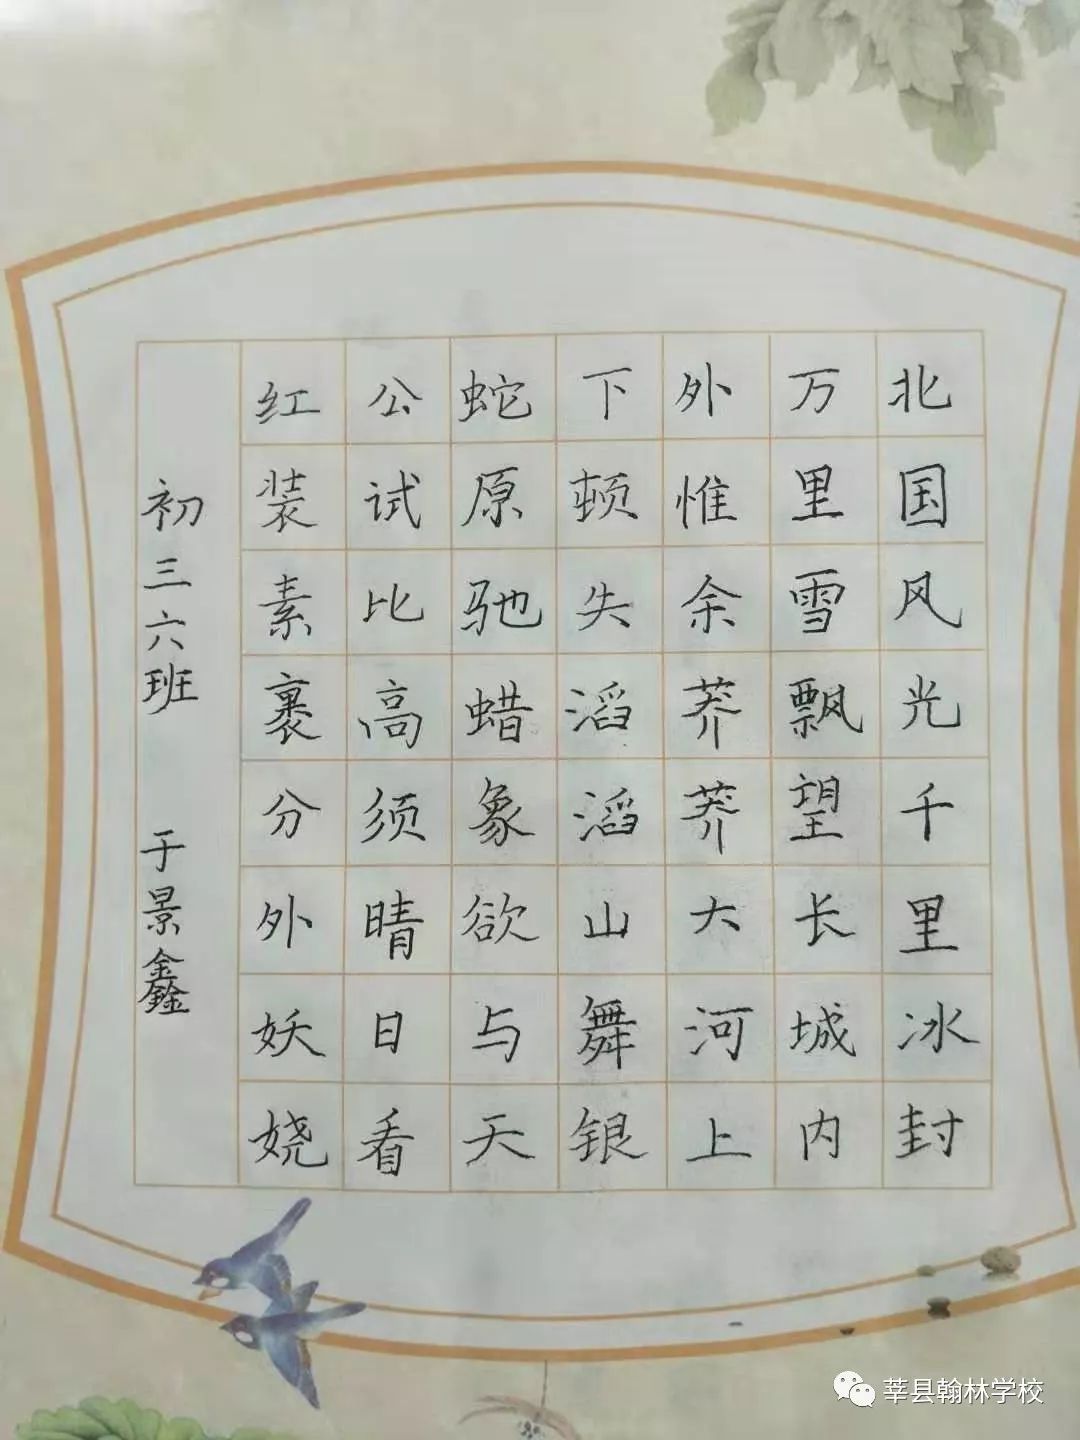 北国风光千里冰封
万里雪飘望长城内
外惟余莽莽大河上
下顿失滔滔山舞银
蛇原驰蜡象欲与天
公试比高须晴日看
红装素裹分外妖娆
初三六班 于景鑫
莘县翰林学校